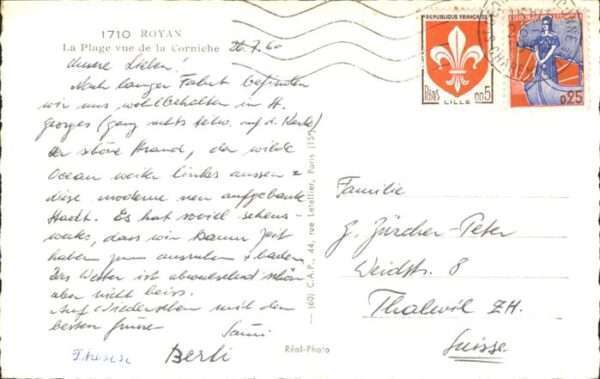 1710 ROYAN
La Plage vue de la Corniche
26.7.60
Unsere Lieben!
Nach langer Fahrt befinden
wir uns wohlbehalten in St.
Georges (ganz rechts auf d. Karte)
Der schöne Strand, der wilde
Ocean weiter links aussen &
diese moderne neu aufgebaute
Stadt. Es hat soviel sehens-
wertes, dass wir kaum Zeit
haben zum ausruhen & baden.
Das Wetter ist abwechselnd schön
aber nicht heiss.
Auf Wiedersehen mit den
besten Grüssen
Therese Berti
RÉPUBLIQUE FRANÇAISE
Rép. Fse
LILLE
0,05
0,25
(60) C.A.P., 44, rue Letellier, Paris (15e)
Réal-Photo
Familie
G. Zürcher-Peter
Weidstr. 8
Thalwil ZH.
Suisse.